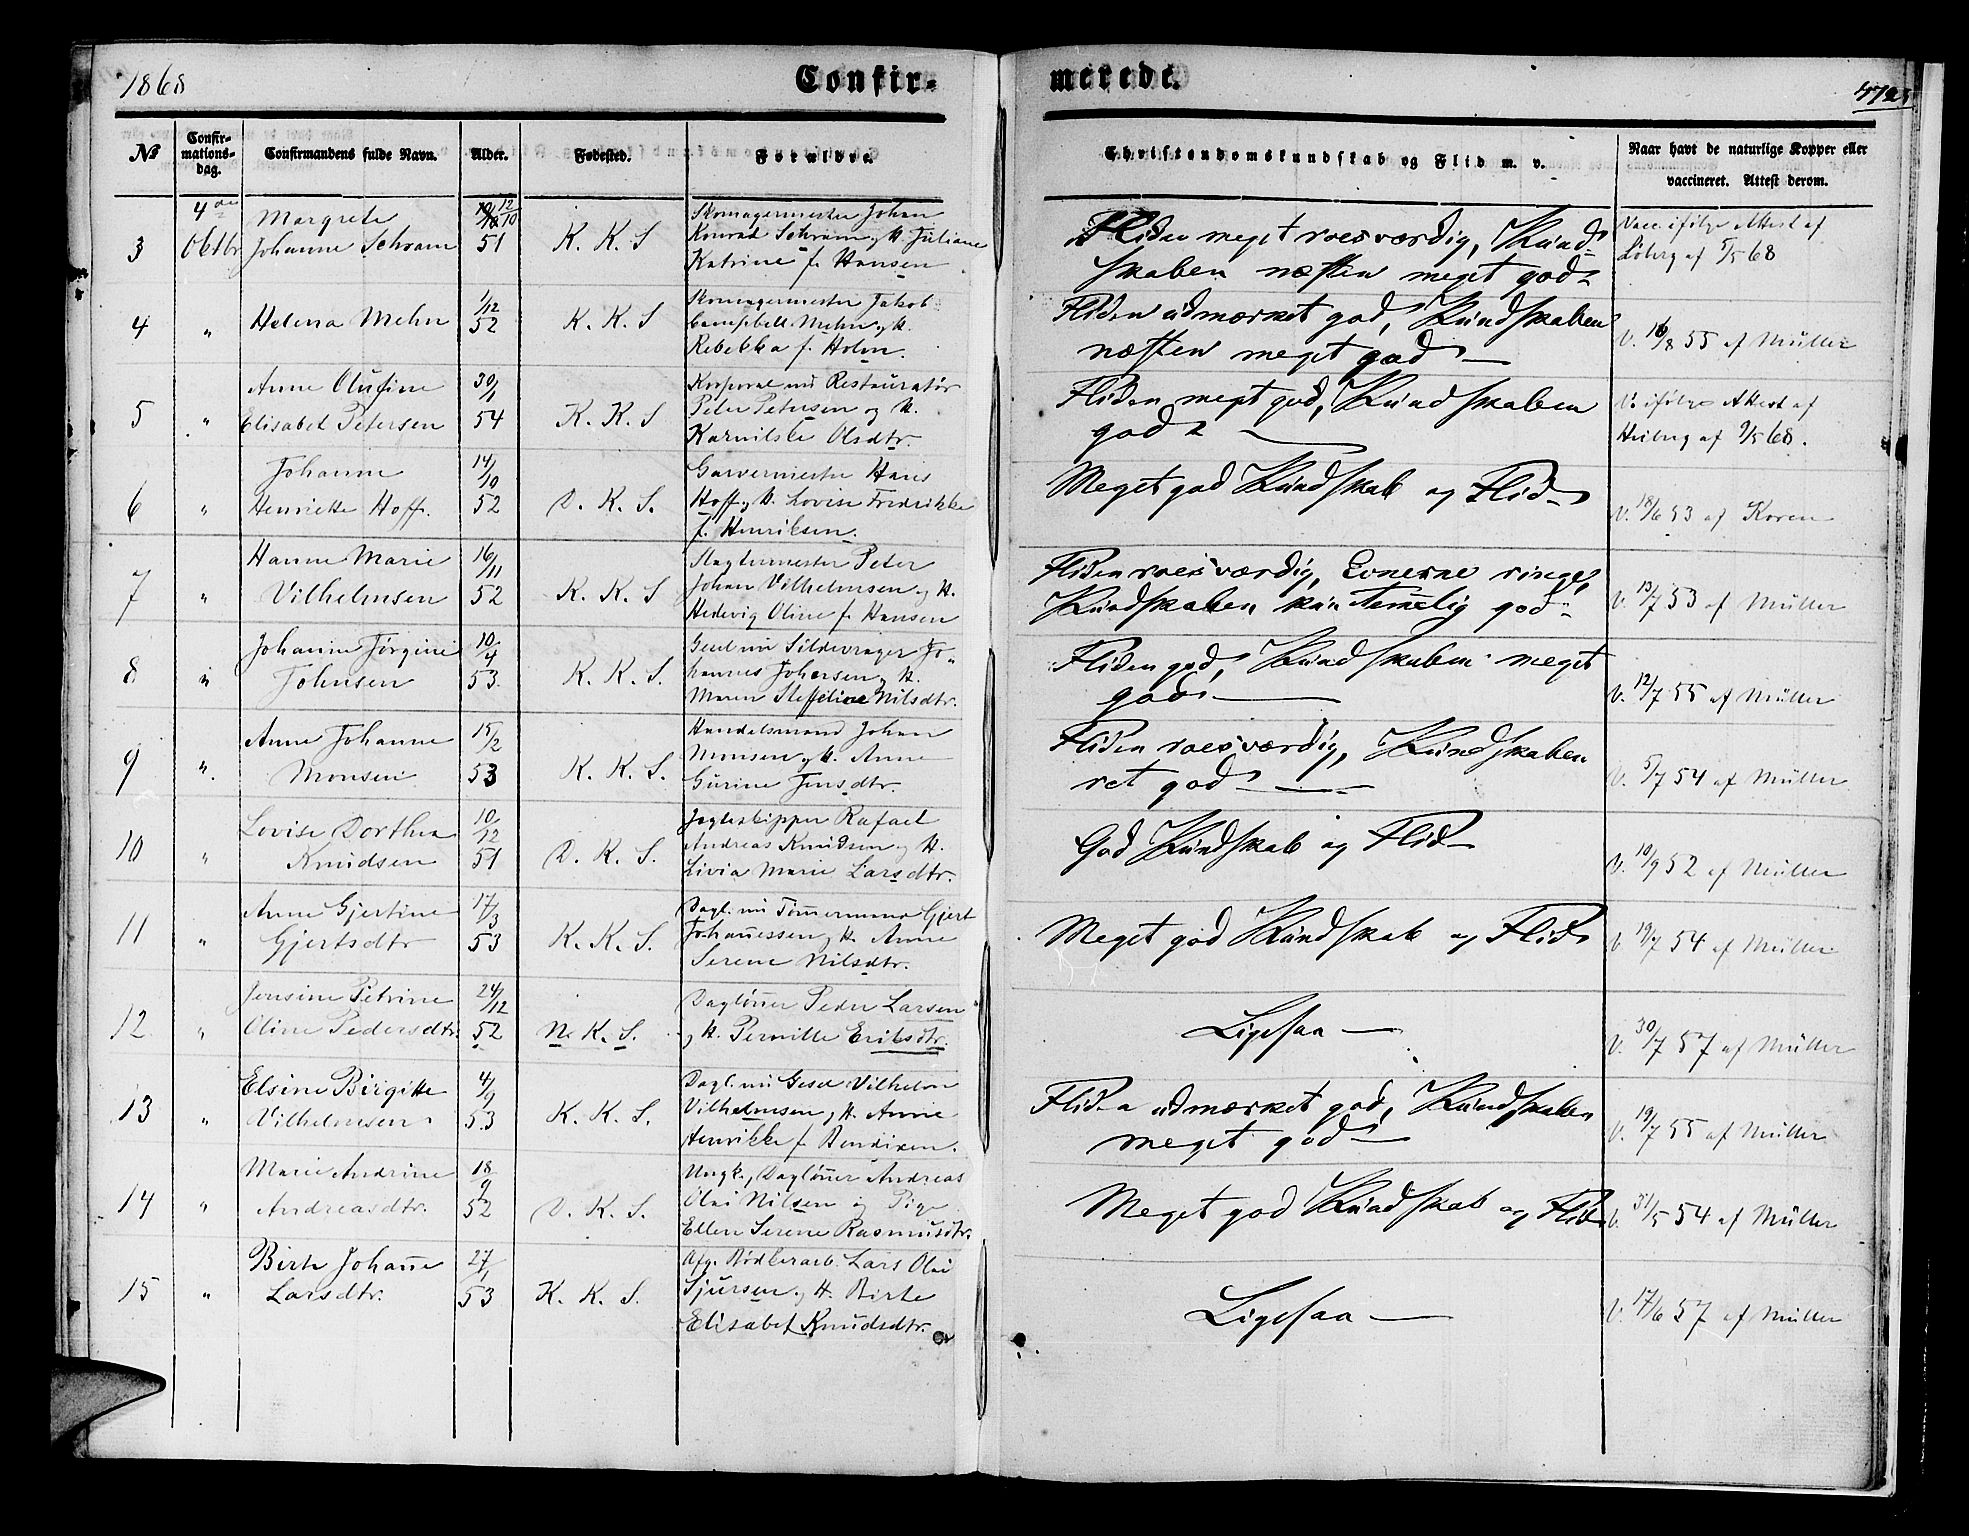 1868
Confir-
merede.
№
Confir-
mations-
dag.
Confirmandens fulde Navn.
Alder.
Fødested.
Forældre.
Christendomskundskab og Flid m. v.
Naar havt de naturlige Kopper eller
vaccineret. Attest derom.
3
4de
Oktbr
Margrete
Johanne Schram
12/10
51
K. K. S
Skomagermester Johan
Konrad Schram og H. Juliane
Katrine f. Hansen
Fliden meget roesværdig, Kund-
skaben næsten meget god
Vacc. ifølge Attest af
Löberg af 5/5 68
4
"
Helena Mehn
1/12
52
K. K. S
Skomagermester Jakob
Campbell Mehn og H.
Rebekka f. Holm.
Fliden udmærket god, Kundskaben
næsten meget god
V. 16/8 55 af Müller
5
"
Anne Olufine
Elisabet Petersen
30/1
54
K. K. S
Korporal nu Restauratør
Peter Petersen og H.
Karnilske Olsdtr.
Fliden meget god, Kundskaben
god
V. ifølge Attest af
Heiberg af 9/5 68.
6
"
Johanne
Henriette Hoff.
14/10
52
D. K. S.
Garvermester Hans
Hoff og H. Lovise Fredrikke
f. Henriksen.
Meget god Kundskab og Flid
V. 18/6 53 af Koren
7
"
Hanne Marie
Vilhelmsen
16/11
52
K. K. S
Slagtermester Peter
Johan Vilhelmsen og H.
Hedevig Oline f. Hansen
Fliden roesværdig, Evnerne ringe,
Kundskaben kun temelig god
V. 13/7 53 af Müller
8
"
Johanne Jørgine
Johnsen
10/4
53.
K. K. S.
Gesel nu Sildevrager Jo-
hannes Johnsen og H.
Maren Steffeline Nilsdtr.
Fliden god, Kundskaben meget
god
V. 12/7 55 af Müller
9
"
Anne Johanne
Monsen
15/2
53
K. K. S.
Handelsmand Johan
Monsen og H. Anne
Gurine Jensdtr.
Fliden roesværdig, Kundskaben
ret god
V. 5/7 54 af Müller
10
"
Lovise Dorthea
Knudsen
10/12
51
D. K. S.
Jagteskipper Rafael
Andreas Knudsen og H.
Livia Marie Larsdtr.
God Kundskab og Flid
V. 10/9 52 af Müller
11
"
Anne Gjertine
Gjertsdtr
17/3
53
K. K. S.
Dagl. nu Tømmermand Gjert
Johannessen og H. Anne
Serene Nilsdtr.
Meget god Kundskab og Flid
V. 19/7 54 af Müller
12
"
Jensine Petrine
Oline Pedersdtr.
24/12
52
N. K. S.
Dagløner Peder Larsen
og H. Pernille Eriksdtr.
Ligesaa
V. 30/7 57 af Müller
13
"
Elsine Birgitte
Vilhelmsen
4/9
53
K. K. S.
Dagl. nu Gesel Vilhelm
Vilhelmsen og H. Anne
Henrikke f. Bendixen.
Fliden udmærket god, Kundskaben
meget god
V. 19/7 55 af Müller
14
"
Marie Andrine
Andreasdtr.
18/9
52
D. K. S.
Ungk., Dagløner Andreas
Olai Nilsen og Pige
Ellen Serene Rasmusdtr.
Meget god Kundskab og Flid
V. 31/5 54 af Müller
15
"
Birte Johanne
Larsdtr.
27/1
53
K. K. S.
Afg. Bødkerarb. Lars Olai
Sjursen og H. Birte
Elisabet Knudsdtr.
Ligesaa
V. 17/6 57 af Müller